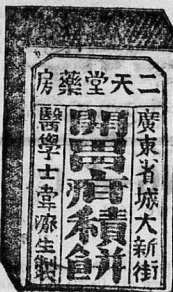 二天堂藥房
廣東省城大新街
開胃疳積餅
醫學士韋濂生製